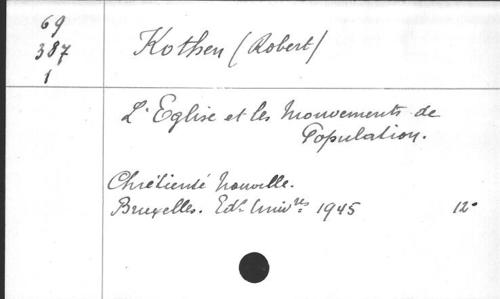 69
387
1
Kothen (Robert)
L'Eglise et les Mouvements de
Population.
Chrétienté Nouvelle.
Bruxelles. Edns Univres 1945 12°